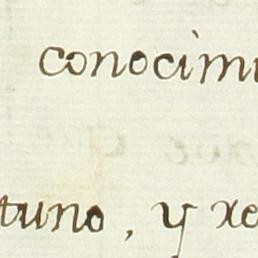 conocimi
tuno, y re